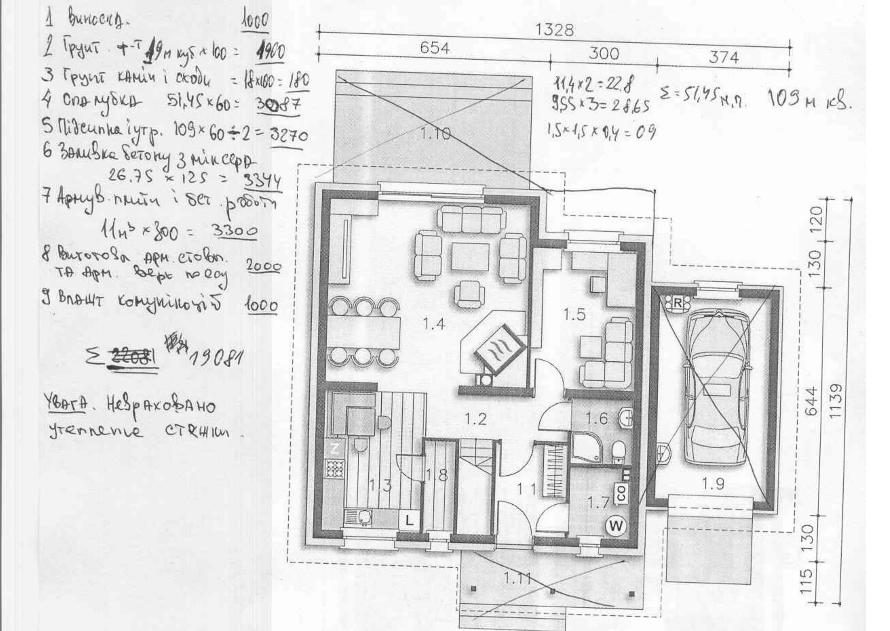 1 Виноска. 1000
2 Грунт. 19 м куб × 100 = 1900
3 Грунт камін і сходи = 18×100 = 180
4 Опалубка 51,45×60= 3087
5 Підсипка і утр. 109×60÷2=3270
6 Заливка бетону з міксера
26.75 × 125 = 3344
7 Армув. плити і бет. роботи
11м³ × 300 = 3300
8 Виготова арм. стовп.
та арм. верх поясу 2000
9 Влашт комунікацій 1000
Σ 22081 19081
Увага. Невраховано
утепление стяжки.
1328
654 300 374
11,4×2=22.8
9,55×3=28,65
1,5×1,5×0,4=09
Σ=51,45 м.п. 109 м кв.
1.10
1.4
1.5
R
1.2
1.6
Z
1.3
1.8
1.1
1.7
CO
L
W
1.9
1.11
120
130
644
1139
130
115